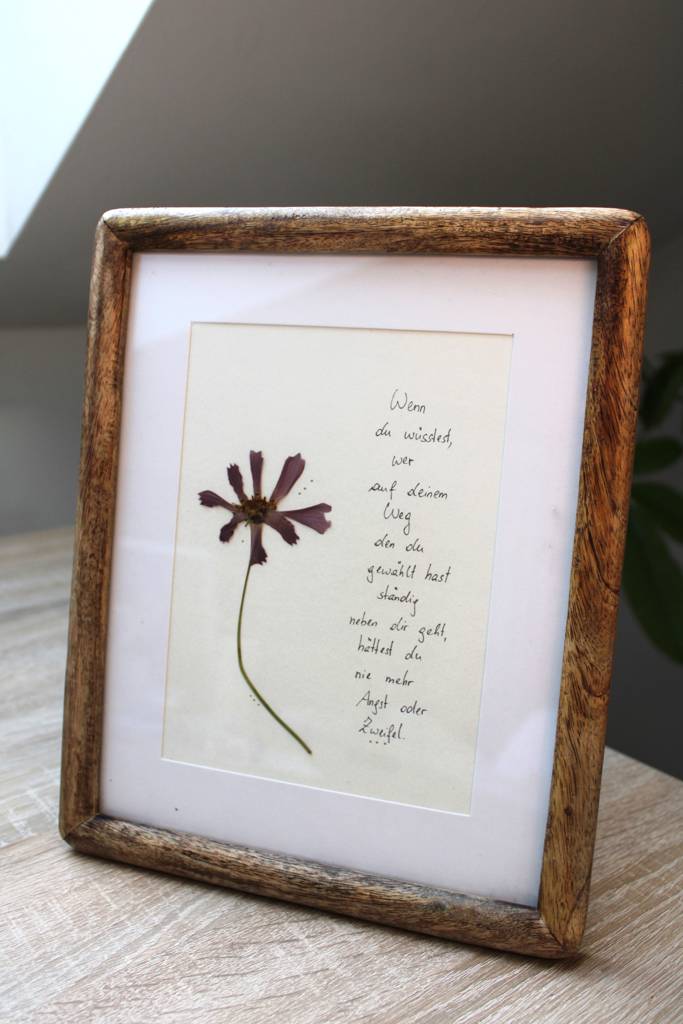 Wenn
du wüsstest,
wer
auf deinem
Weg
den du
gewählt hast
ständig
neben dir geht,
hättest du
nie mehr
Angst oder
Zweifel.